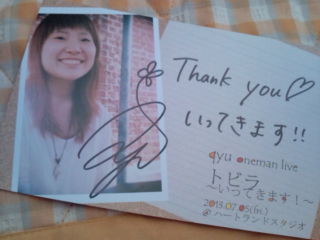 Thank you♡
いってきます!!
ayu oneman live
トビラ
〜いってきます！〜
2013.07.05(fri.)
@ハートランドスタジオ